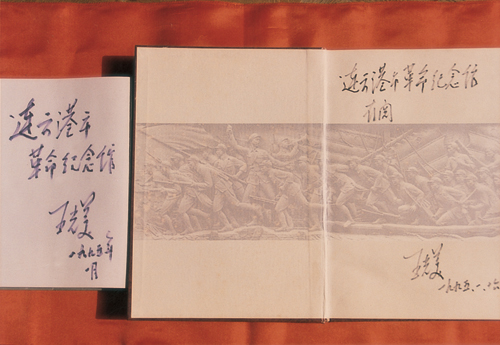 连云港市
革命纪念馆
王光美
一九九五年
一月
连云港市革命纪念馆
存阅
王光美
一九九五.一.